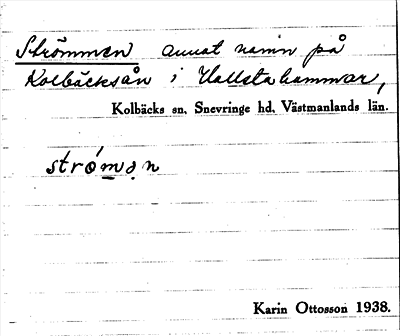 Strömmen annat namn på
Kolbäcksån i Hallstahammar,
Kolbäcks sn, Snevringe hd, Västmanlands län.
strómən
Karin Ottosson 1938.